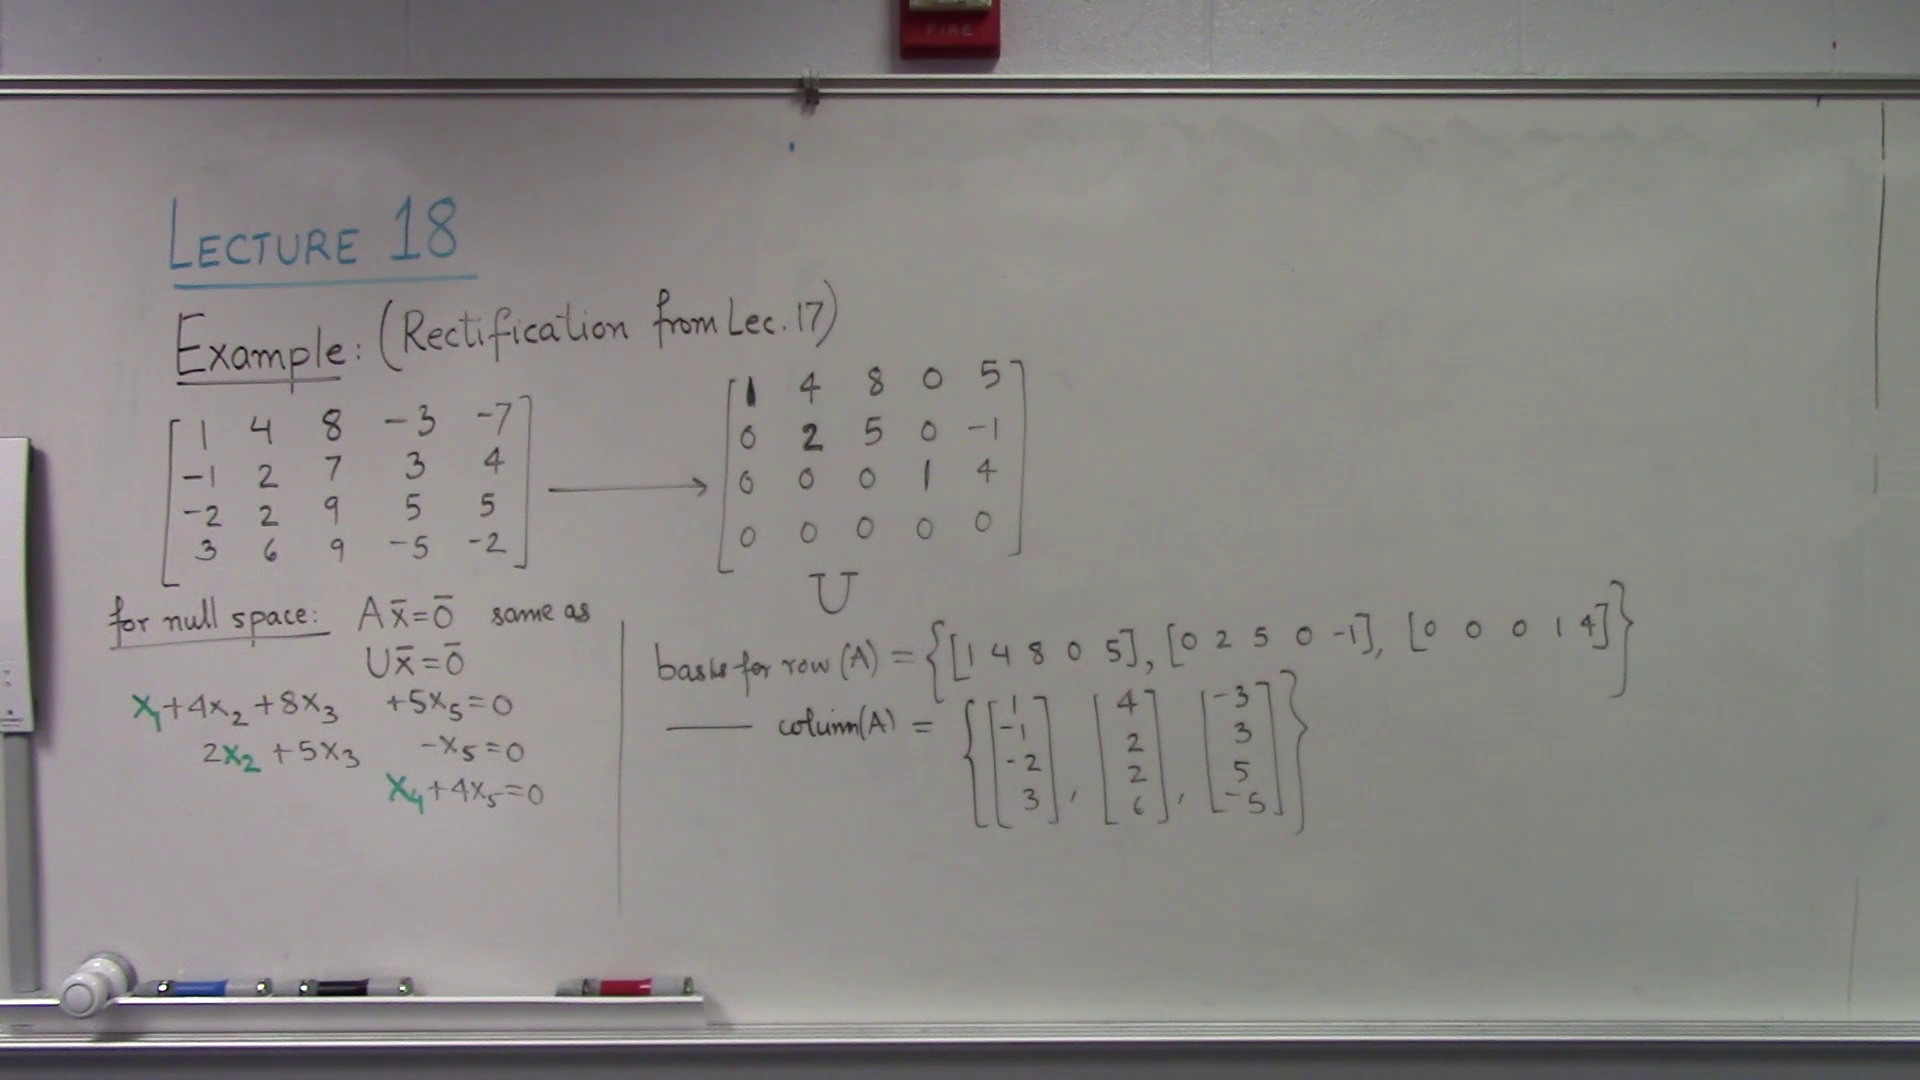 FIRE
LECTURE 18
Example: (Rectification from Lec. 17)
[1 4 8 -3 -7
-1 2 7 3 4
-2 2 9 5 5
3 6 9 -5 -2]
→
[1 4 8 0 5
0 2 5 0 -1
0 0 0 1 4
0 0 0 0 0]
U
for null space: Ax̄=0̄ same as
Ux̄=0̄
x₁+4x₂+8x₃ +5x₅=0
2x₂+5x₃ -x₅=0
x₄+4x₅=0
basis for row(A) = {[1 4 8 0 5], [0 2 5 0 -1], [0 0 0 1 4]}
—— column(A) = {[1 -1 -2 3], [4 2 2 6], [-3 3 5 -5]}